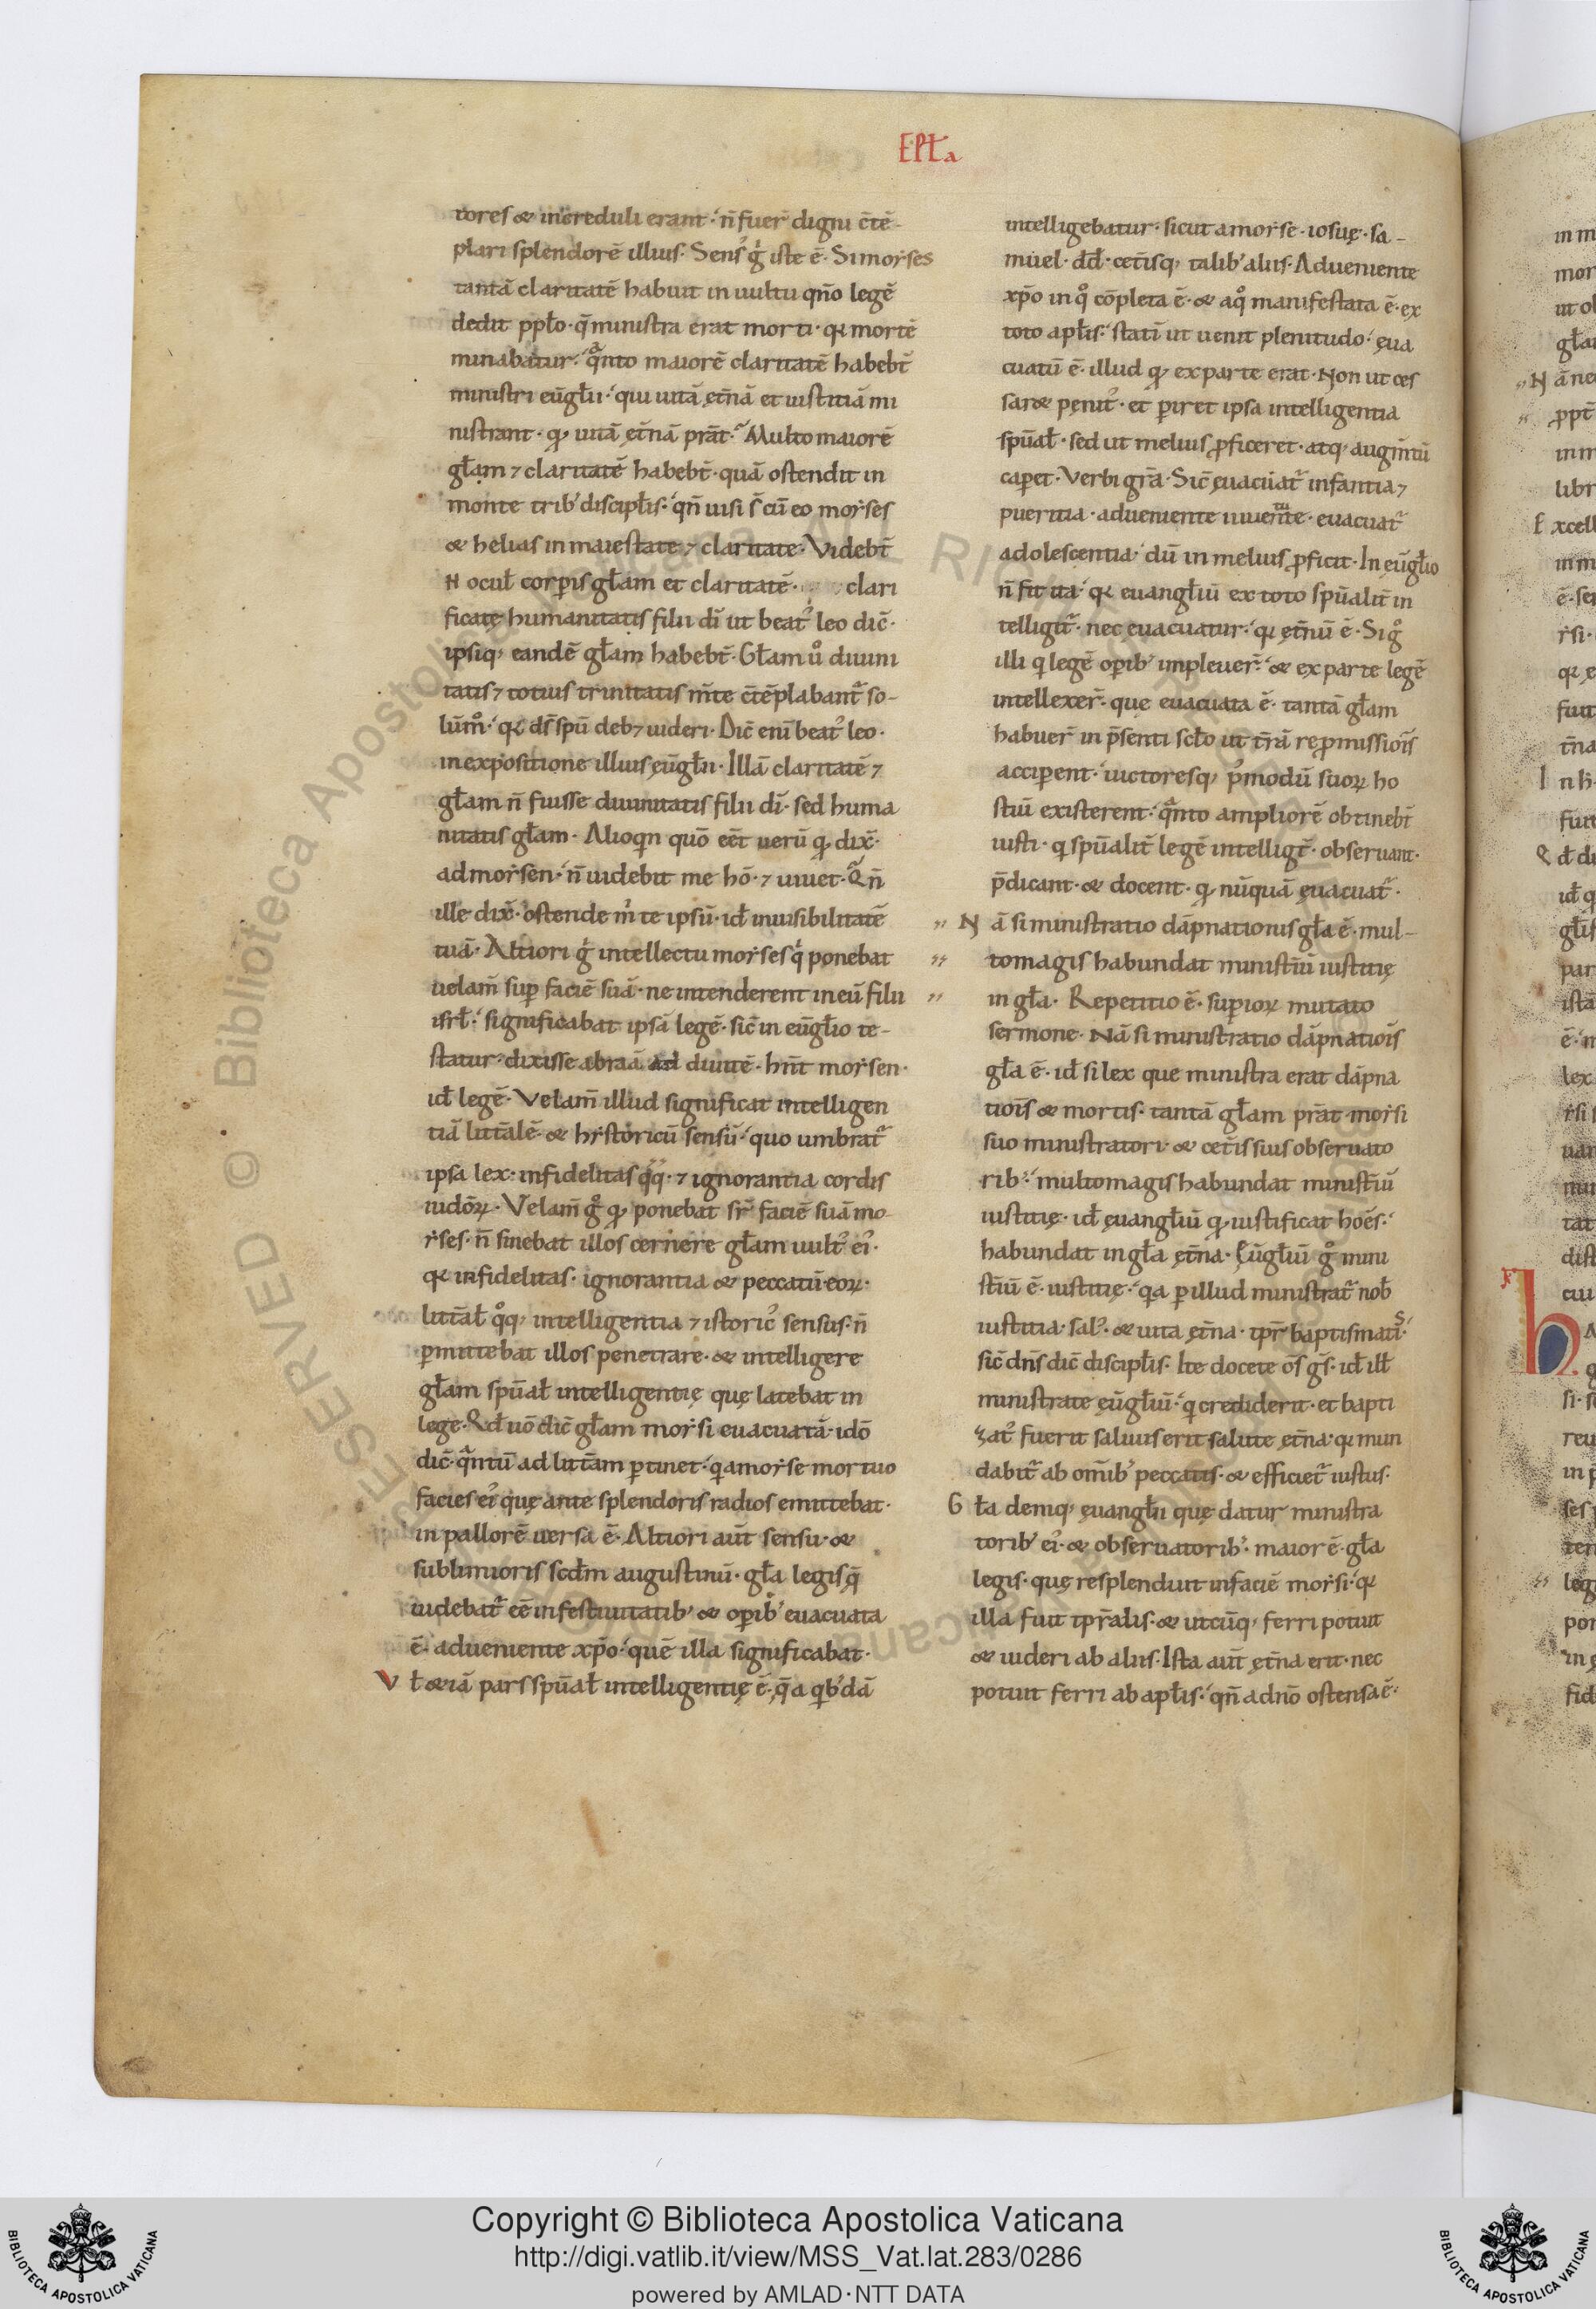 EPŁa
tores & increduli erant·´ n̄ fuer̄ digni c̄tē-
plari splendorē illius· Sensꝰ gͥ iste ē· Si moẏses
tantā claritatē habuit in uultu qn̄o legē
dedit pplo· q̄ ministra erat morti· qꝛ mortē
minabatur·´ qᵃnto maiorē claritatē habebt̄
ministri eūglii·´ qui uitā ęt̄nā et iustitiā mi
nistrant· qꝫ uitā ęt̄nā prāt· Multo maiorē
głam ⁊ claritatē habebt̄· quā ostendit in
monte tribꝰ discipłis·´ qn̄ uisi s̄ cū eo moẏses
& helias in maiestate ⁊ claritate· Videbt̄
N ocuł corꝑis głam et claritatē· clari
ficatę humanitatis filii dī ut beatꝰ leo dic̄·
ipsiqꝫ eandē głam habebt̄· Głam uͦ diuini
tatis ⁊ totius trinitatis m̄te c̄tēplabantᷣ so-
lūm̊·´ qꝛ ds̄ spū deb⁊ uideri· Dic̄ eni beatꝰ leo·
in expositione illius ęūglii· Illā claritatē ⁊
głam n̄ fuisse diuinitatis filii dī· sed huma
nitatis głam· Alioqͥn quō eēt uerū qꝫ dix̄·
ad moẏsen·´ n̄ uidebit me hō· ⁊ uiuet· Qͣn̄
ille dix̄· ostende mͥ te ipsū· id̄ inuisibilitatē
tuā· Altiori gͥ intellectu moẏses qͥ ponebat
uelam̄ suꝑ faciē suā· ne intenderent in eū filii
isrł·´ significabat ipsā legē· sic̄ in eūglio te-
statur· dixisse abraā ad diuitē· hn̄t moẏsen·
id̄ legē· Velam̄ illud significat intelligen
tiā litt̄alē· & hẏstoricū sensū·´ quo umbratᷣ
ipsa lex· infidelitas qͦqꝫ· ⁊ ignorantia cordis
iudōꝝ· Velam̄ gͦ qꝫ ponebat sr̄ faciē suā mo-
ẏses· n̄ sinebat illos cernere głam uultꝰ eiꝰ·
qꝛ infidelitas· ignorantia & peccatū eoꝝ·
litt̄ał qͦqꝫ intelligentia ⁊ istoricꝰ sensus· n̄
ꝑmittebat illos penetrare· & intelligere
głam spūał intelligentię quę latebat in
lege· Qd̄ uō dic̄ głam moẏsi euacuatā· idō
dic̄· qᵃntū ad litt̄am ꝑtinet·´ qͥa moẏse mortuo
facies eiꝰ quę ante splendoris radios emittebat·
in pallorē uersa ē· Altiori aut̄ sensu· &
sublimioris scd̄m augustinū· gła legis q̄
uidebatᷣ eē in festiuitatibꝰ & oꝑibꝰ euacuata
ē· adueniente xp̄o·´ quē illa significabat·
V ł &iā pars spūał intelligentię ē· q̄ a qͥbꝰdā
intelligebatur· sicut a moẏse· iosuę· sa-
muel· dd̄· cet̄isqꝫ talibꝰ aliis· Adueniente
xp̄o in qͦ cōpleta ē· & a qͦ manifestata ē· ex
toto apłis·´ stati ut uenit plenitudo·´ ęua
cuatū ē· illud qꝫ ex parte erat· Non ut ces
sar& penitꝰ· et ꝑiret ipsa intelligentia
spūał· sed ut melius ꝓficeret· atqꝫ augm̄tū
caꝑet· Verbi gr̄a· Sic̄ ęuacuatᷣ infantia ⁊
pueritia· adueniente iuuentute· euacuatᷣ
adolescentia·´ dū in melius ꝓficit· In ęūglio
n̄ fit ita·´ qꝛ euangliū ex toto spūalit̄ in
telligitᷣ· nec euacuatur·´ qꝛ ęt̄nū ē· Si gͦ
illi qͥ legē oꝑibꝰ impleuer̄·´ & ex parte legē
intellexer̄· que euacuata ē· tantā głam
habuer̄ in p̄senti scło ut t̄rā reꝓmissiōis
acciꝑent·´ uictoresqꝫ p̄modū suoꝝ ho
stiū existerent·´ qᵃnto ampliorē obtinebt̄
iusti· qͥ spūalit̄ legē intelligt̄· obseruant·
p̄dicant· & docent· qꝫ nūquā ęuacuatᷣ·
N ā si ministratio dāpnationis gła ē· mul-
to magis habundat minist̄iū iustitię
in gła· Repetitio ē· suꝑioꝝ mutato
sermone· Nā si ministratio dāpnatiōis
gła ē· id̄ si lex que ministra erat dāpna
tiōis & mortis· tantā głam prāt moẏsi
suo ministratori· & cet̄is suis obseruato
ribꝰ·´ multo magis habundat minist̄iū
iustitię· id̄ ęuangliū qꝫ iustificat hoēs·´
habundat in gła ęt̄na· Ęūgliū gͦ mini
st̄iū ē· iustitię·´ qͥa ꝑ illud ministratᷣ nob̄
iustitia· salꝰ· & uita ęt̄na· tpr̄ baptismatis·´
sic̄ dn̄s dic̄ discipłis· Ite docete ōs gs̄· id̄ ill̄
ministrate ęūgliū·´ qͥ crediderit· et bapti
zatꝰ fuerit saluus erit salute ęt̄na· qꝛ mun
dabitᷣ ab om̄ibꝰ peccatis· & efficietᷣ iustus·
G ła deniqꝫ ęuanglii quę datur ministra
toribꝰ eiꝰ· & obseruatoribꝰ· maior ē· gła
legis· quę resplenduit in faciē moẏsi·´ qꝛ
illa fuit tpr̄alis· & utcūqꝫ ferri potuit
& uideri ab aliis· Ista aut̄ ęt̄na erit· nec
potuit ferri ab apłis·´ qn̄ a dn̄o ostensa ē·´
Copyright © Biblioteca Apostolica Vaticana
http://digi.vatlib.it/view/MSS_Vat.lat.283/0286
powered by AMLAD·NTT DATA
BIBLIOTECA APOSTOLICA VATICANA
BIBLIOTECA APOSTOLICA VATICANA